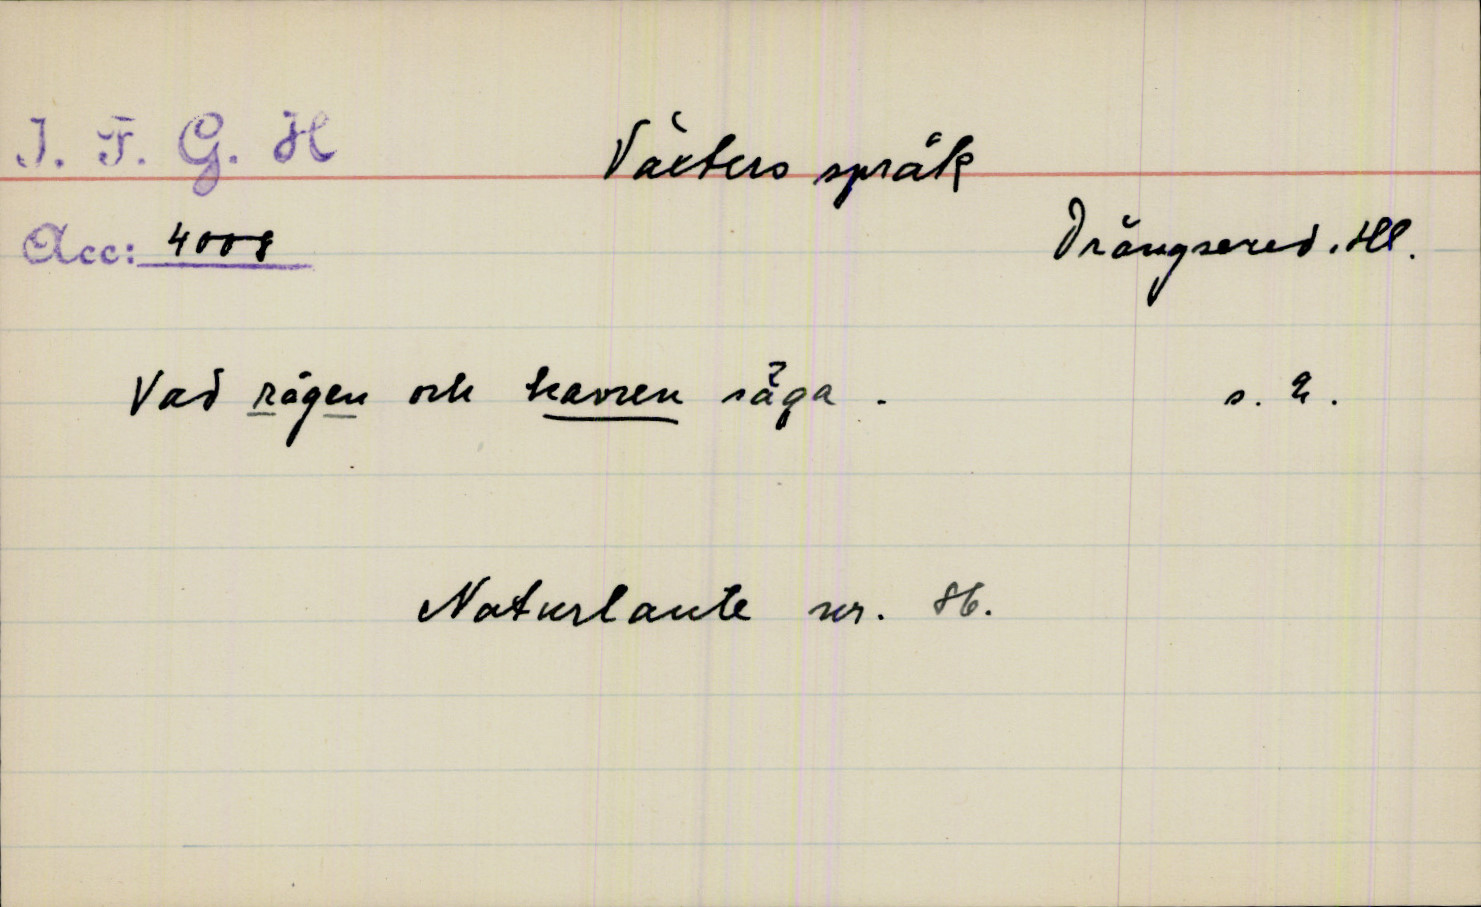 I. F. G. H
Växters språk
Acc: 4008
Drängsered. Hl.
Vad rågen och havren säga. s. 2.
Naturlaute nr. 86.